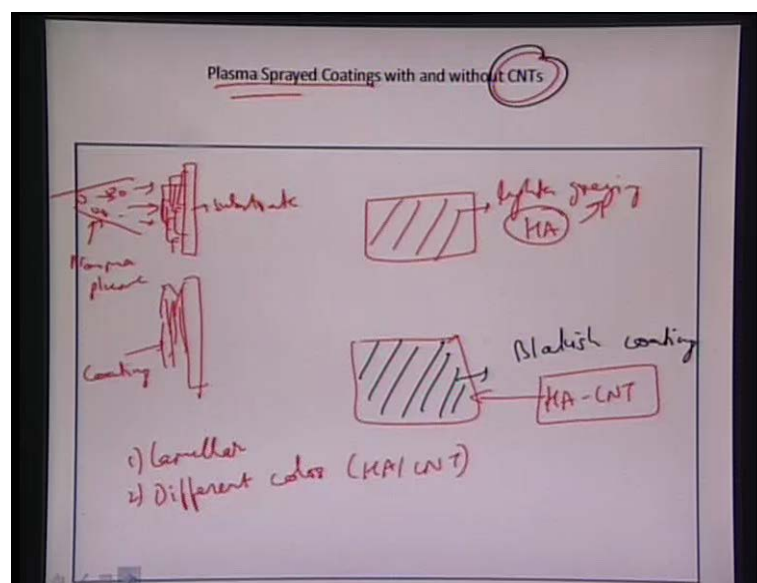 Plasma Sprayed Coatings with and without CNTs
substrate
Plasma
plume
Coating
lighter greying
HA
Blakish coating
HA-CNT
1) Lamellar
2) Different color (HA/CNT)